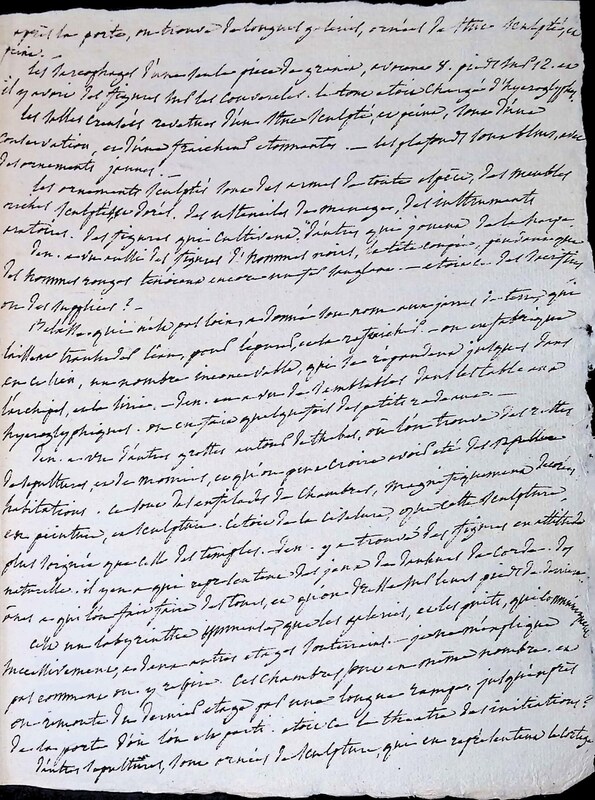 après la porte, on trouve de longues galeries, ornées de stuc sculpté, et
peint.
les sarcophages d'une seule pièce de granit, avoient 8. pieds sur 12. et
il y avoit des figures sur les couvercles. le tout étoit chargé d'hyeroglyphes,
les salles creusées revetues d'un stuc sculpté, et peint, sont d'une
conservation, et d'une fraicheur etonnantes. — les plafonds sont bleus, avec
des ornements jaunes. —
les ornements sculptés sont des armes de toute espèce, des meubles
riches sculptés et dorés. des ustensiles de menages, des instruments
aratoires. des figures qui cultivent. d'autres qui jouent de la harpe.
den. a vu des figures d'hommes noirs, la tête coupée, pendant que
des hommes rouges tenoient encore un fer sanglant. — etoit ce des sacrifices
ou des supplices? —
qui n'est pas loin, a donné son nom aux jarres de terre, qui
l'eau, pour l'épurer, et la rafraichir. — on en fabrique
en ce lieu, un nombre inconcevable, qui se repandent jusques dans
l'archipel, et la sirie. — den. en a vu de semblables dans les tableaux
hyeroglyphiques. on en fait quelquefois des petits radeaux. —
den. a vu d'autres grottes autour de thebes, où l'on trouve des restes
de sepultures, et de momies, et qu'on peut croire avoir été des
habitations. ce sont des enfilades de chambres, magnifiquement decorées
en peinture, et sculpture. c'etoit de la ciselure, que cette sculpture,
plus soignée que celle des temples. den. y a trouvé des figures en attitude
naturelle. il y en a qui representent des jeux de danseurs de corde. des
ânes à qui l'on fait faire des tours, et qu'on dresse sur leurs pieds de derrière
c'est un labyrinthe immense, que les galeries, et les puits, qui
successivement, et dans autres etages souterrains. — je ne m'explique
pas comment on y respire. ces chambres, sont en même nombre. et
on remonte du dernier etage par une longue rampe, jusqu'auprès
de la porte d'où l'on est parti. etoit ce le theatre des initiations?
d'autres sepultures, sont ornées de sculpture, qui en representent le cortege